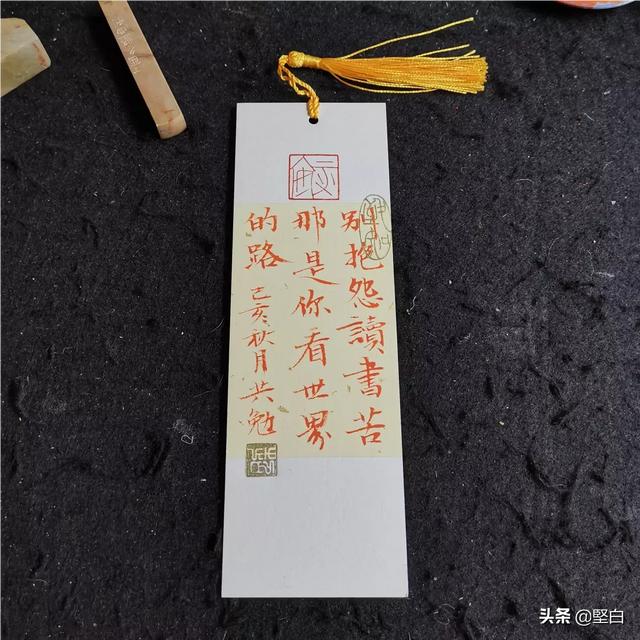 别抱怨讀書苦
那是你看世界
的路
己亥秋月共勉
头条 @堅白